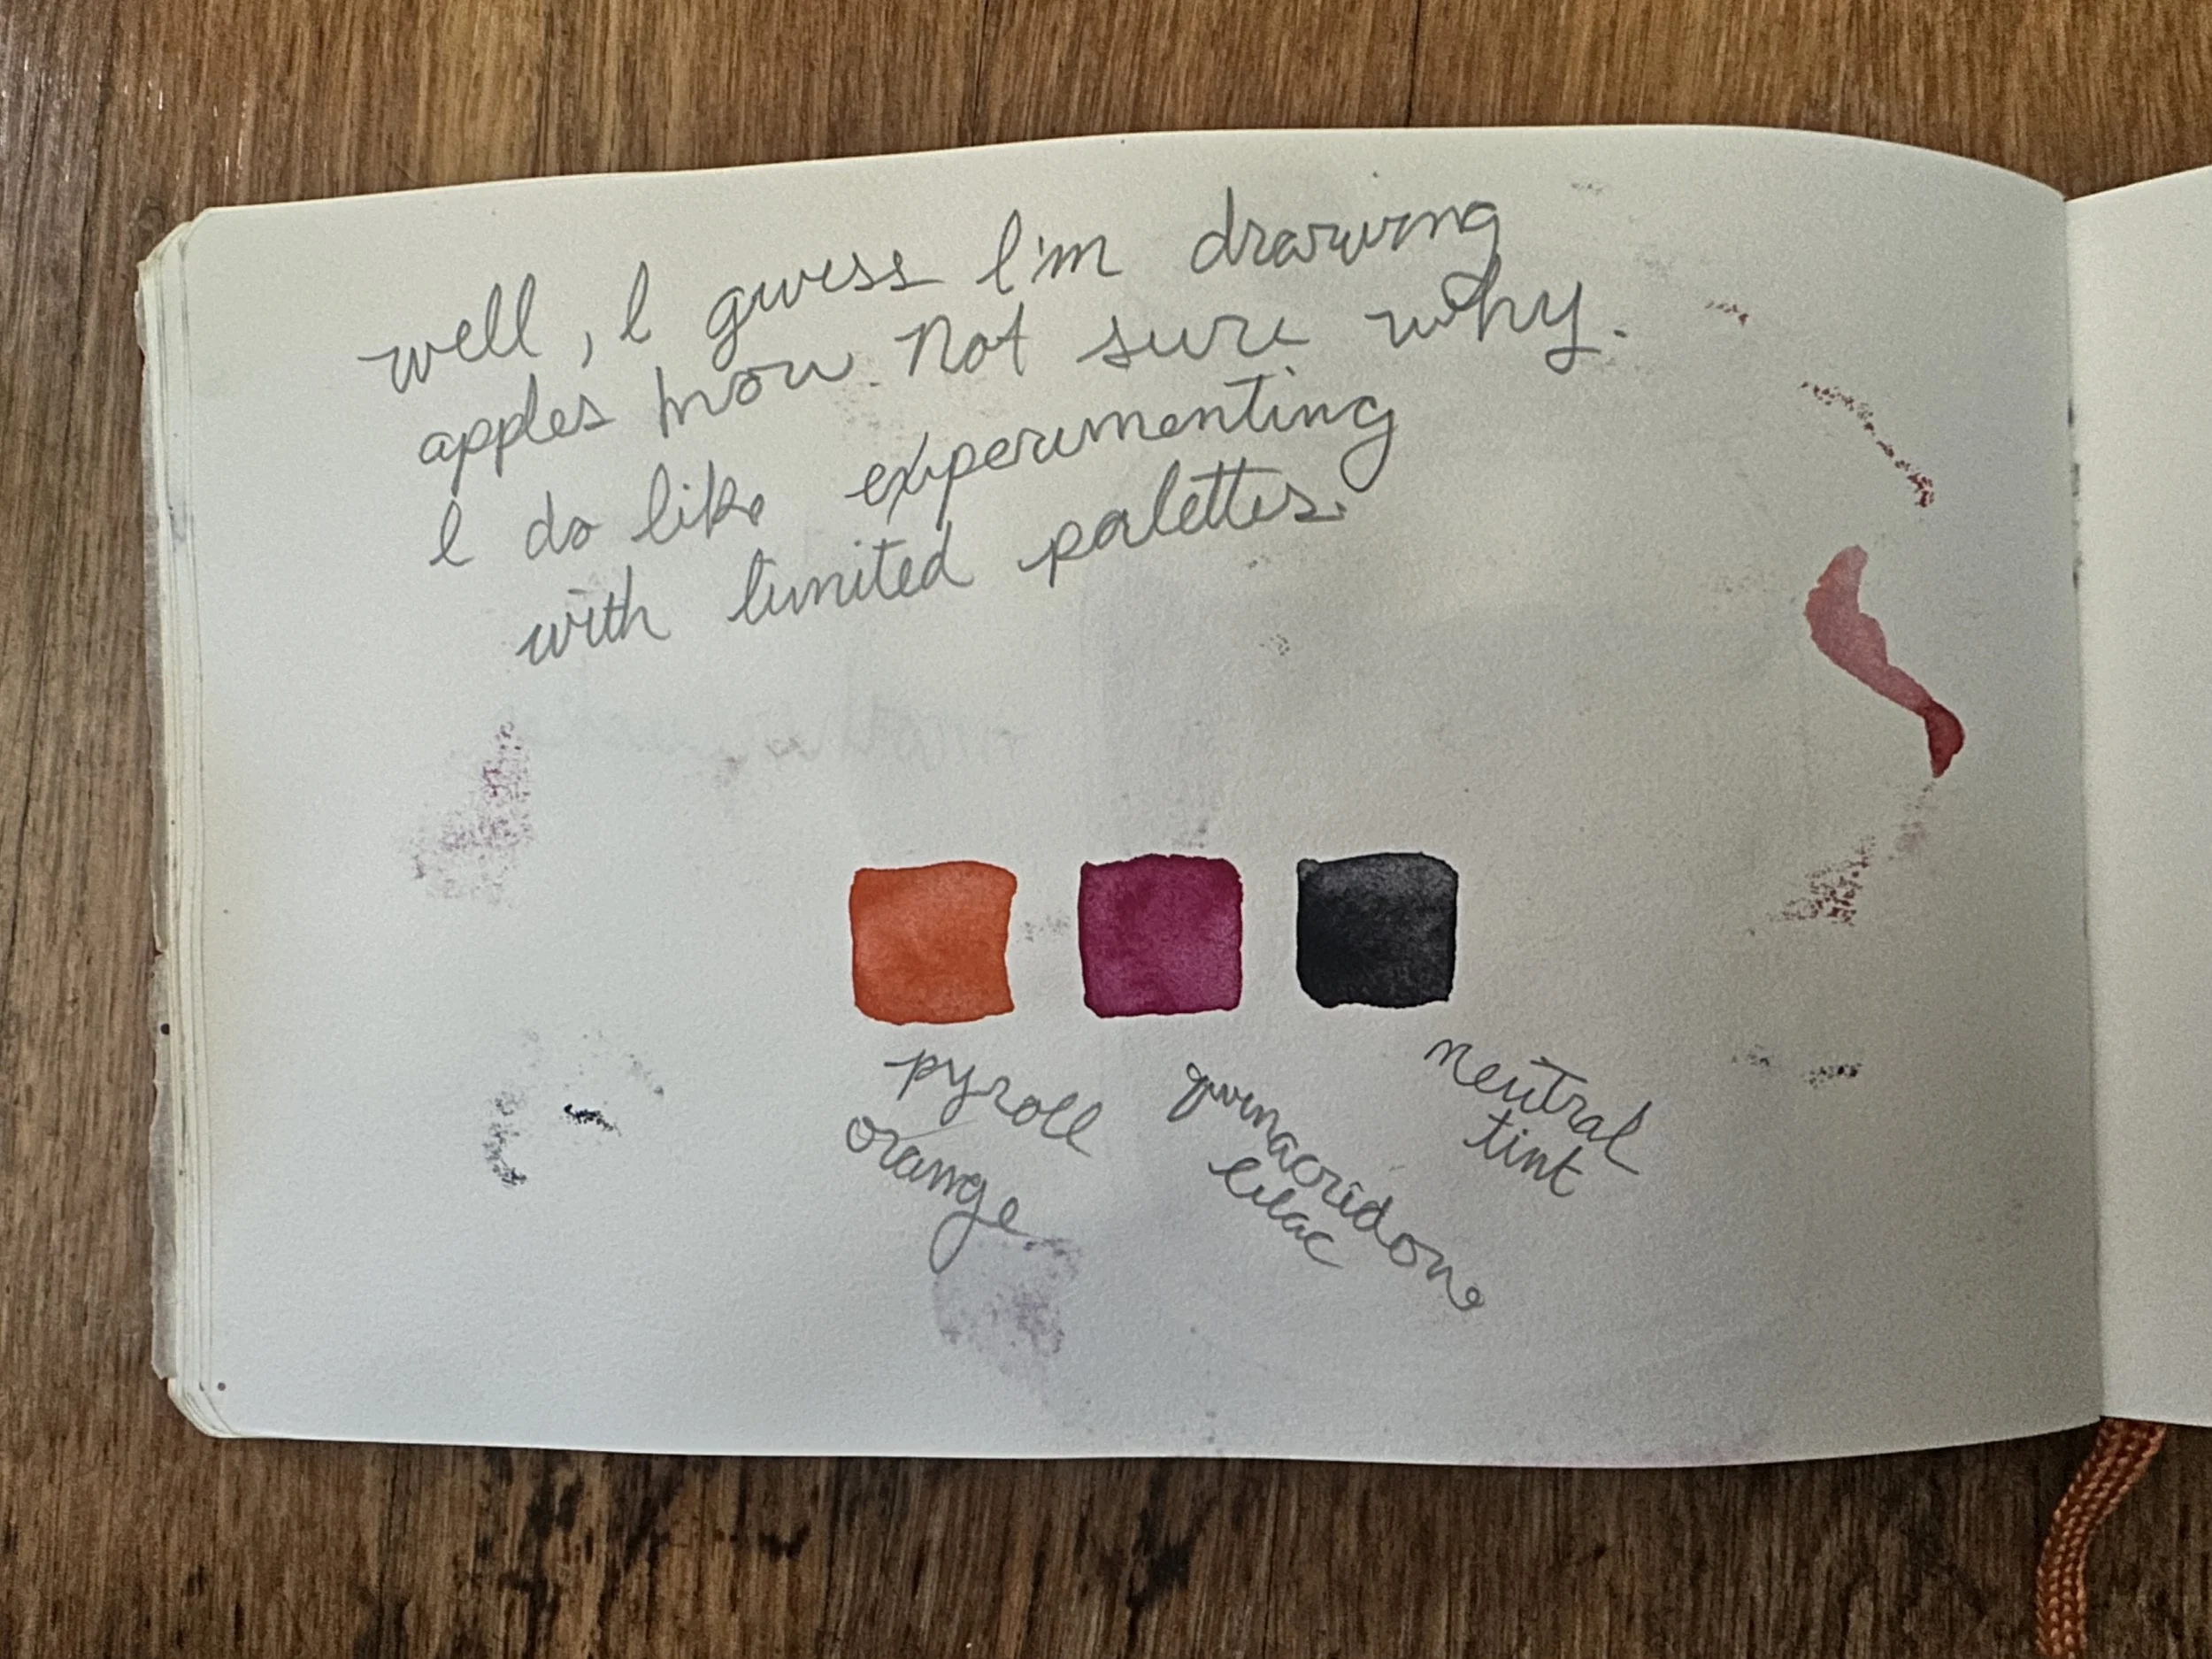 well, I guess I'm drawing
apples now. Not sure why.
I do like experimenting
with limited palettes.
pyroll
orange
quinacridone
lilac
neutral
tint